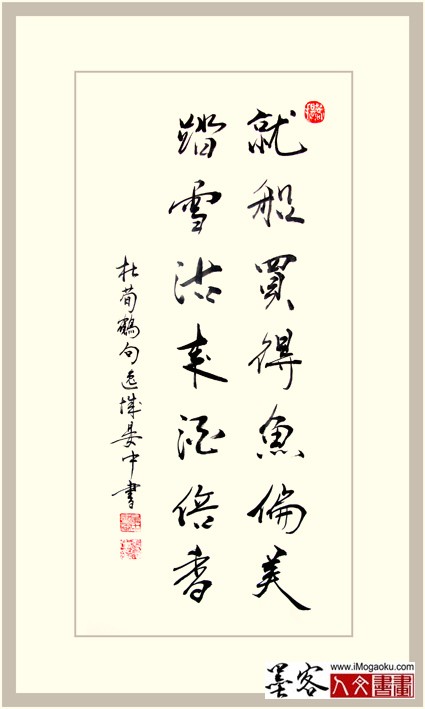 就船買得魚偏美
踏雪沽來酒倍香
杜荀鶴句 晏中書
墨客
www.iMogaoku.com
人文書畫